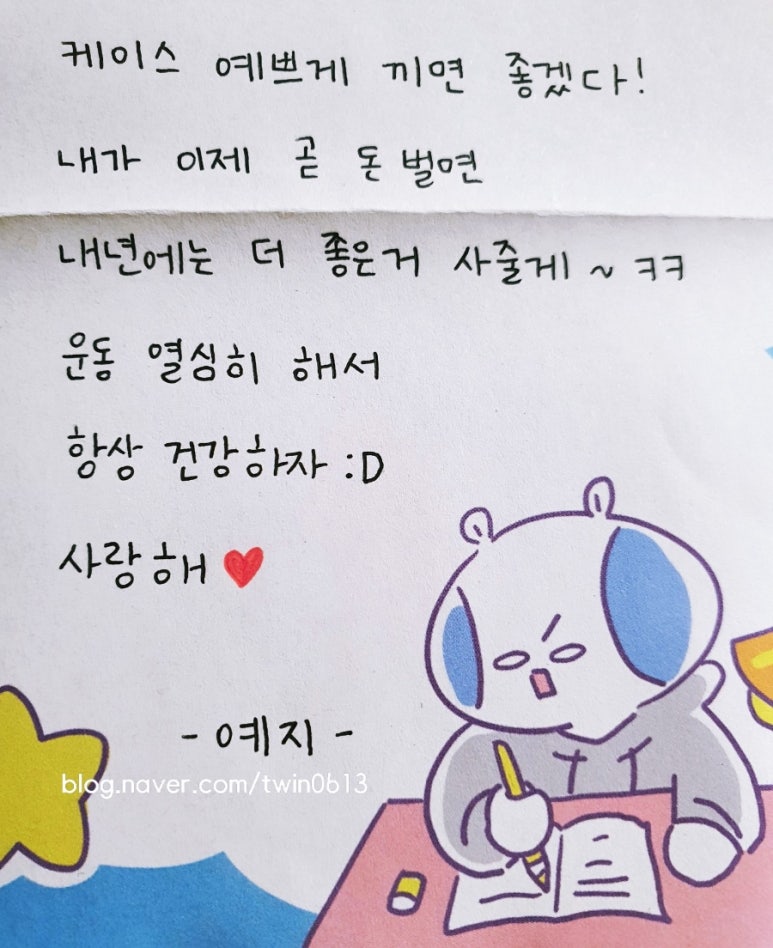 케이스 예쁘게 끼면 좋겠다!
내가 이제 곧 돈 벌면
내년에는 더 좋은거 사줄게 ~ ㅋㅋ
운동 열심히 해서
항상 건강하자 :D
사랑해 ♥
- 예지 -
blog.naver.com/twin0613